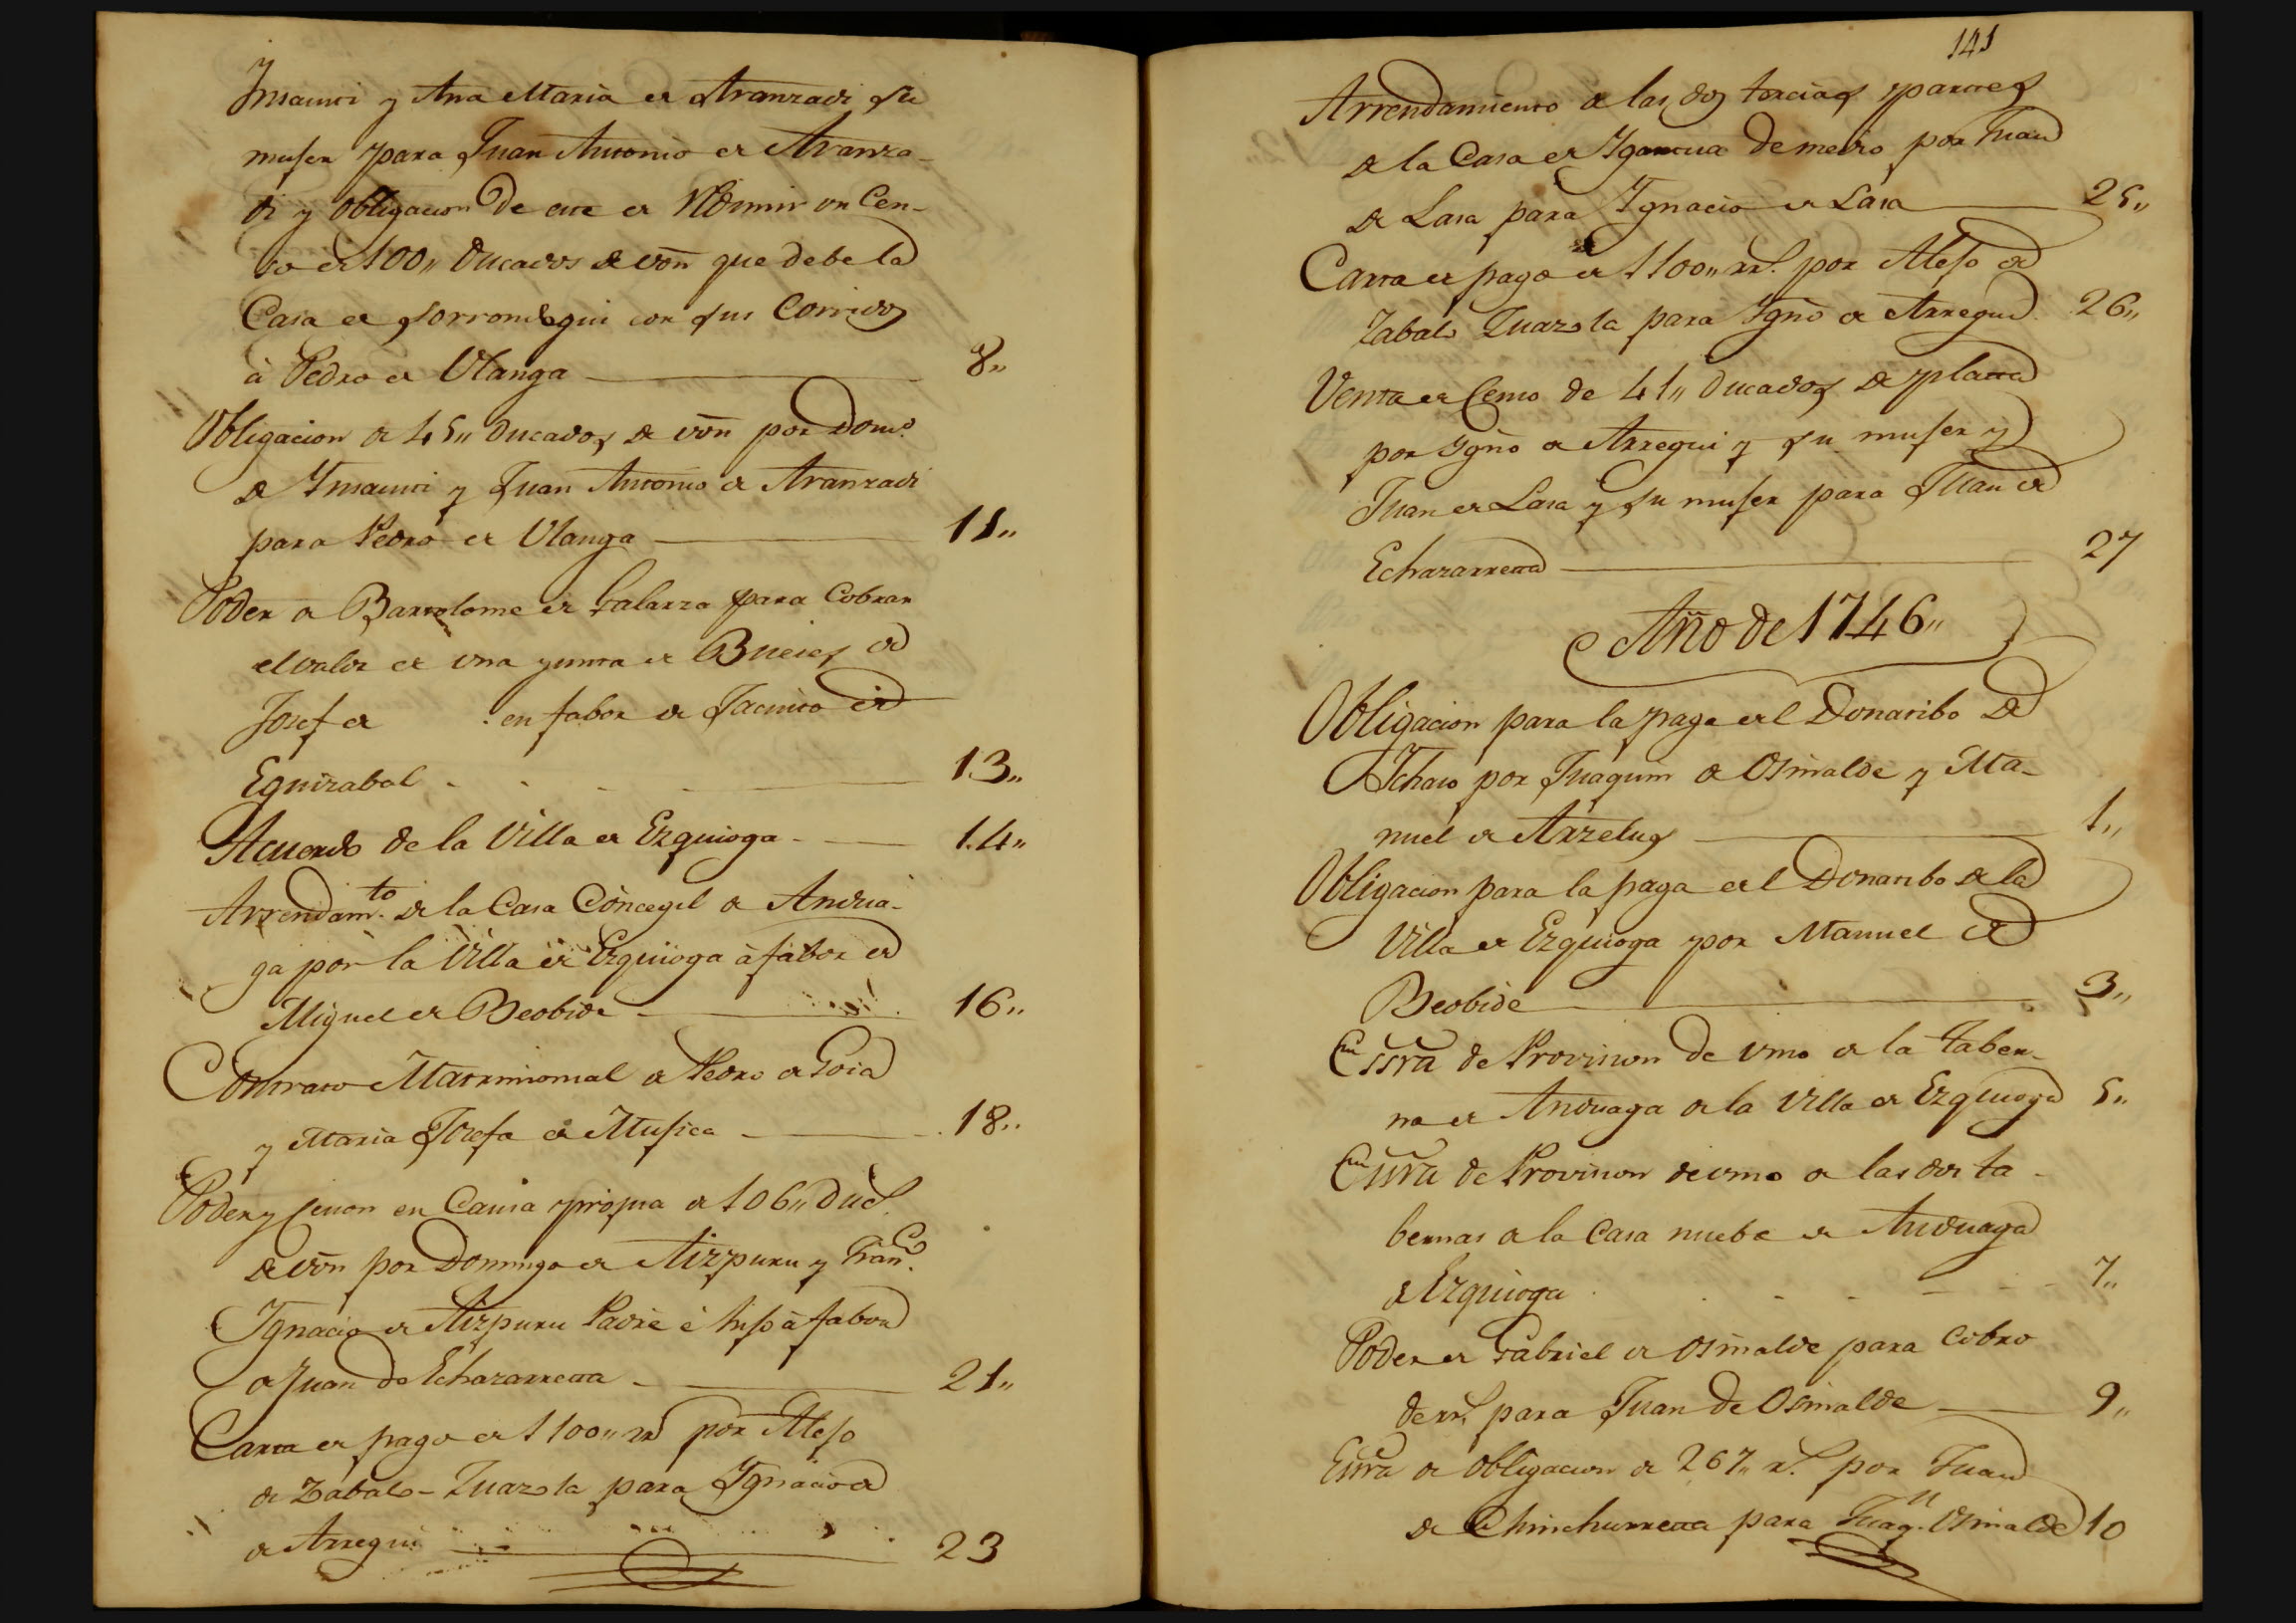 Insausti y Ana Maria de Aranzadi su
muger para Juan Antonio de Aranza-
di y obligacion de este de redimir un Cen-
so de 100,, Ducados de von que debe la
Casa de Sorrondegui con sus Corridos
à Pedro de Olanga 8,,
Obligacion de 45,, Ducados de von por Domo
de Insausti y Juan Antonio de Aranzadi
para Pedro de Olanga 11,,
Poder a Bartolome de Galarza para Cobrar
el valor de una yunta de Bueies de
Josef de en fabor de Jacinto de
Eguizabal 13,,
Acuerdo de la Villa de Ezquioga 14,,
Arrendamto de la Casa Concegil de Andua-
ga por la Villa de Ezquioga à fabor de
Miguel de Beobide 16,,
Contrato Matrimonial de Pedro de Goia
y Maria Josefa de Mugica 18,,
Poder y cesion en Causa propia de 106,, Ducs
de von por Domingo de Aizpuru y Franco
Ignacio de Aizpuru Padre è hijo à fabor
de Juan de Echazarreta 21,,
Carta de pago de 1100,, rs por Alejo
de Zabalo-Zuazola para Ignacio de
de Arregui 23
141
Arrendamiento de las dos tercias partes
de la Casa de Demedio por Juan
de Lasa para Ignacio de Lasa 25,,
Carta de pago de 1100,, rrs. por Alejo de
Zabalo Zuazola para Igno de Arregui 26,,
Venta de Censo de 41,, Ducados de plata
por Igno de Arregui y su muger y
Juan de Lasa y su muger para Juan de
Echazarreta 27
Año de 1746,,
Obligacion para la paga del Donatibo de
Ichaso por Juaquin de Osinalde y Ma-
nuel de Arzelus 1,,
Obligacion para la paga del Donatibo de la
Villa de Ezquioga por Manuel de
Beobide 3,,
Essra de Provision de vino de la taber-
na de Anduaga de la Villa de Ezquioga 5,,
Essra de Provision de vino de las dos ta-
bernas de la Casa nueba de Anduaga
de Ezquioga 7,,
Poder de Gabriel de Osinalde para Cobro
de rrs para Juan de Osinalde 9,,
Essra de obligacion de 267,, rs. por Juan
de Chinchurreta para Juaqn. Osinalde 10